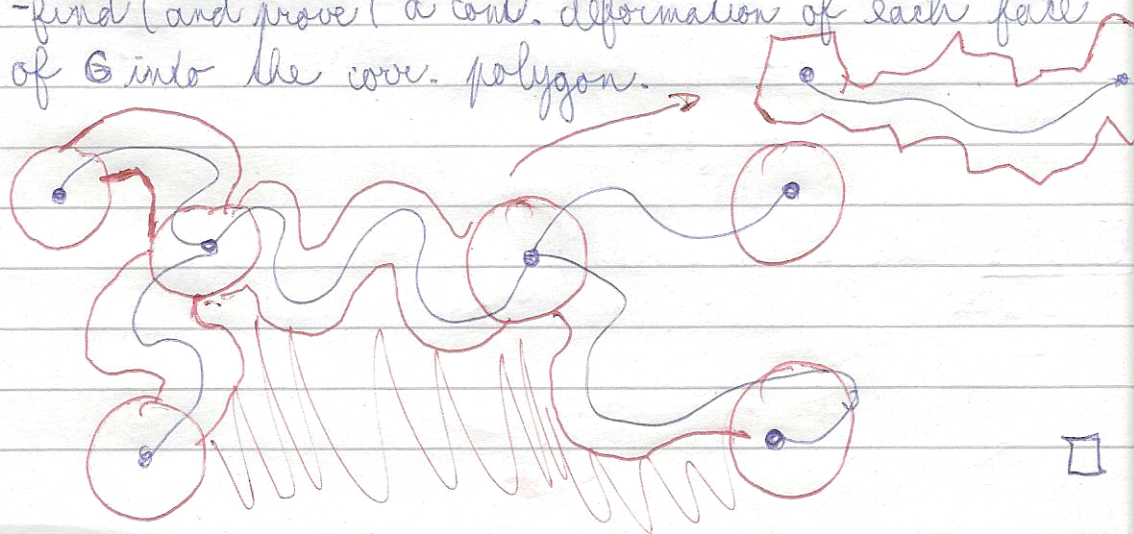 -find (and prove) a cont. deformation of each face
of G into the corr. polygon.